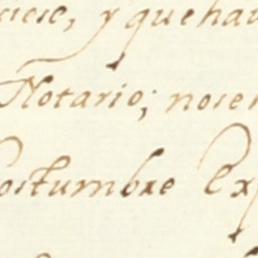 y que hau
Notario; no se
Costumbre Exp